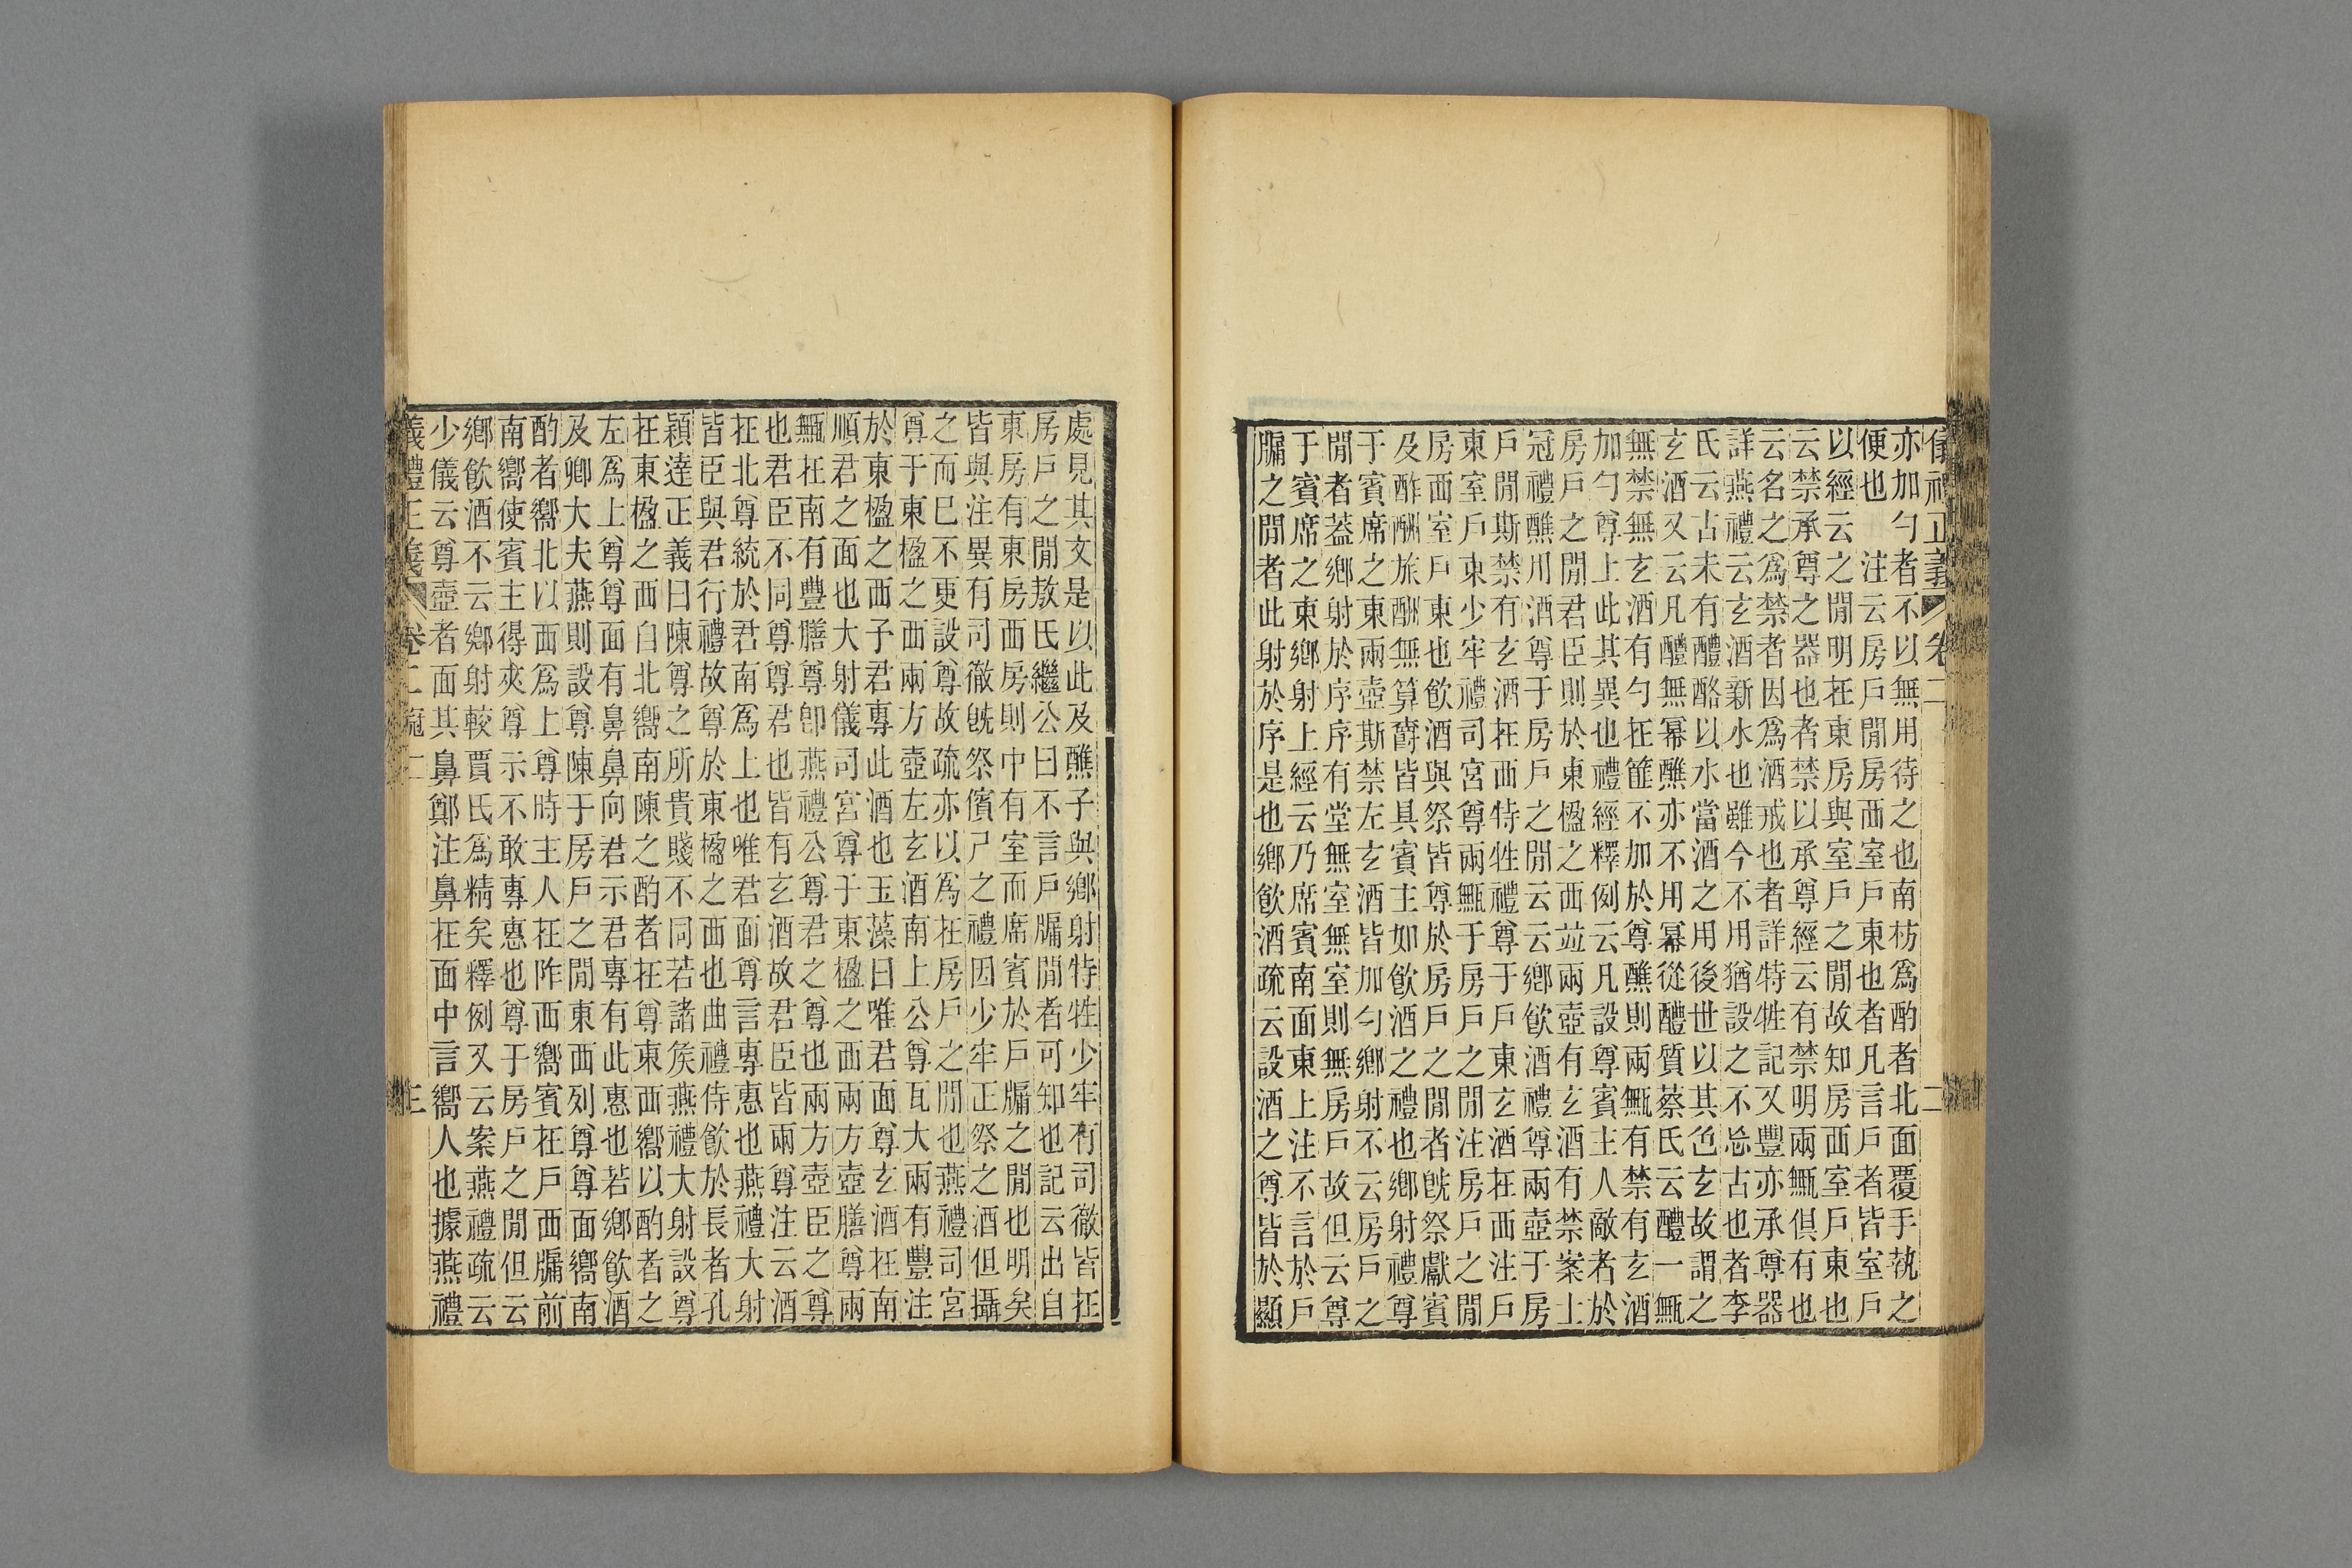 儀禮正義 卷二 二
亦加勺者不以無用待之也南枋爲酌者北面覆手執之
便也 注云房戶閒房西室戶東也者凡言戶者皆室戶
以經云之閒明在東房與室戶之閒故知房西室戶東也
云禁承尊之器也者禁以承尊經云有禁明兩甒俱有也
云名之爲禁者因爲酒戒也者詳特牲記又豐亦承尊器
詳燕禮云玄酒新水也雖今不用猶設之不忘古也者李
氏云古未有醴酪以水當酒之用後世以其色玄故謂之
玄酒又云凡醴無冪醮亦不用冪從醴質蔡氏云醴一甒
無禁無玄酒有勺在篚不加於尊醮則兩甒有禁有玄酒
加勺尊上此其異也禮經釋例云凡設尊賓主人敵者於
房戶之閒君臣則於東楹之西竝兩壺有玄酒有禁案士
冠禮醮用酒尊于房戶之閒云云鄉飲酒禮尊兩壺于房
戶閒斯禁有玄酒在西特牲禮尊于戶東玄酒在西注戶
東室戶東少牢禮司宮尊兩甒于房戶之閒注房戶之閒
房西室戶東也飲酒與祭皆尊於房戶之閒者旣祭獻賓
及酢酬旅酬無算爵皆具賓主如飲酒之禮也鄉射禮尊
于賓席之東兩壺斯禁左玄酒皆加勺鄉射不云房戶之
閒者蓋鄉射於序序有堂無室無室則無房戶故但云尊
于賓席之東鄉射上經云乃席賓南面東上注不言於戶
牖之閒者此射於序是也鄉飲酒疏云設酒之尊皆於顯
處見其文是以此及醮子與鄉射特牲少牢有司徹皆在
房戶之閒敖氏繼公曰不言戶牖閒者可知也記云出自
東房有東房西房則中有室而席賓於戶牖之閒也明矣
皆與注異有司徹旣祭儐尸之禮因少牢正祭之酒但攝
之而已不更設尊故疏亦以爲在房戶之閒也燕禮司宮
尊于東楹之西兩方壺左玄酒南上公尊瓦大兩有豐注
於東楹之西予君專此酒也玉藻曰唯君面尊玄酒在南
順君之面也大射儀司宮尊于東楹之西兩方壺膳尊兩
甒在南有豐膳尊卽燕禮公尊君之尊也兩方壺臣之尊
也君臣不同尊尊君也皆有玄酒故君臣皆兩尊注云酒
在北尊統於君南爲上也唯君面尊言專惠也燕禮大射
皆臣與君行禮故尊於東楹之西也曲禮侍飲於長者孔
穎達正義曰陳尊之所貴賤不同若諸矦燕禮大射設尊
在東楹之西自北嚮南陳之酌者在尊東西嚮以酌者之
左爲上尊尊面有鼻鼻向君示君專有此惠也若鄉飲酒
及卿大夫燕則設尊陳于房戶之閒東西列尊尊面嚮南
酌者嚮北以西爲上尊時主人在阼西嚮賓在戶西牖前
南嚮使賓主得夾尊示不敢專惠也尊于房戶之閒但云
鄉飲酒不云鄉射較賈氏爲精矣釋例又云案燕禮疏云
少儀云尊壺者面其鼻鄭注鼻在面中言嚮人也據燕禮
義禮正義 卷二 冠二 三